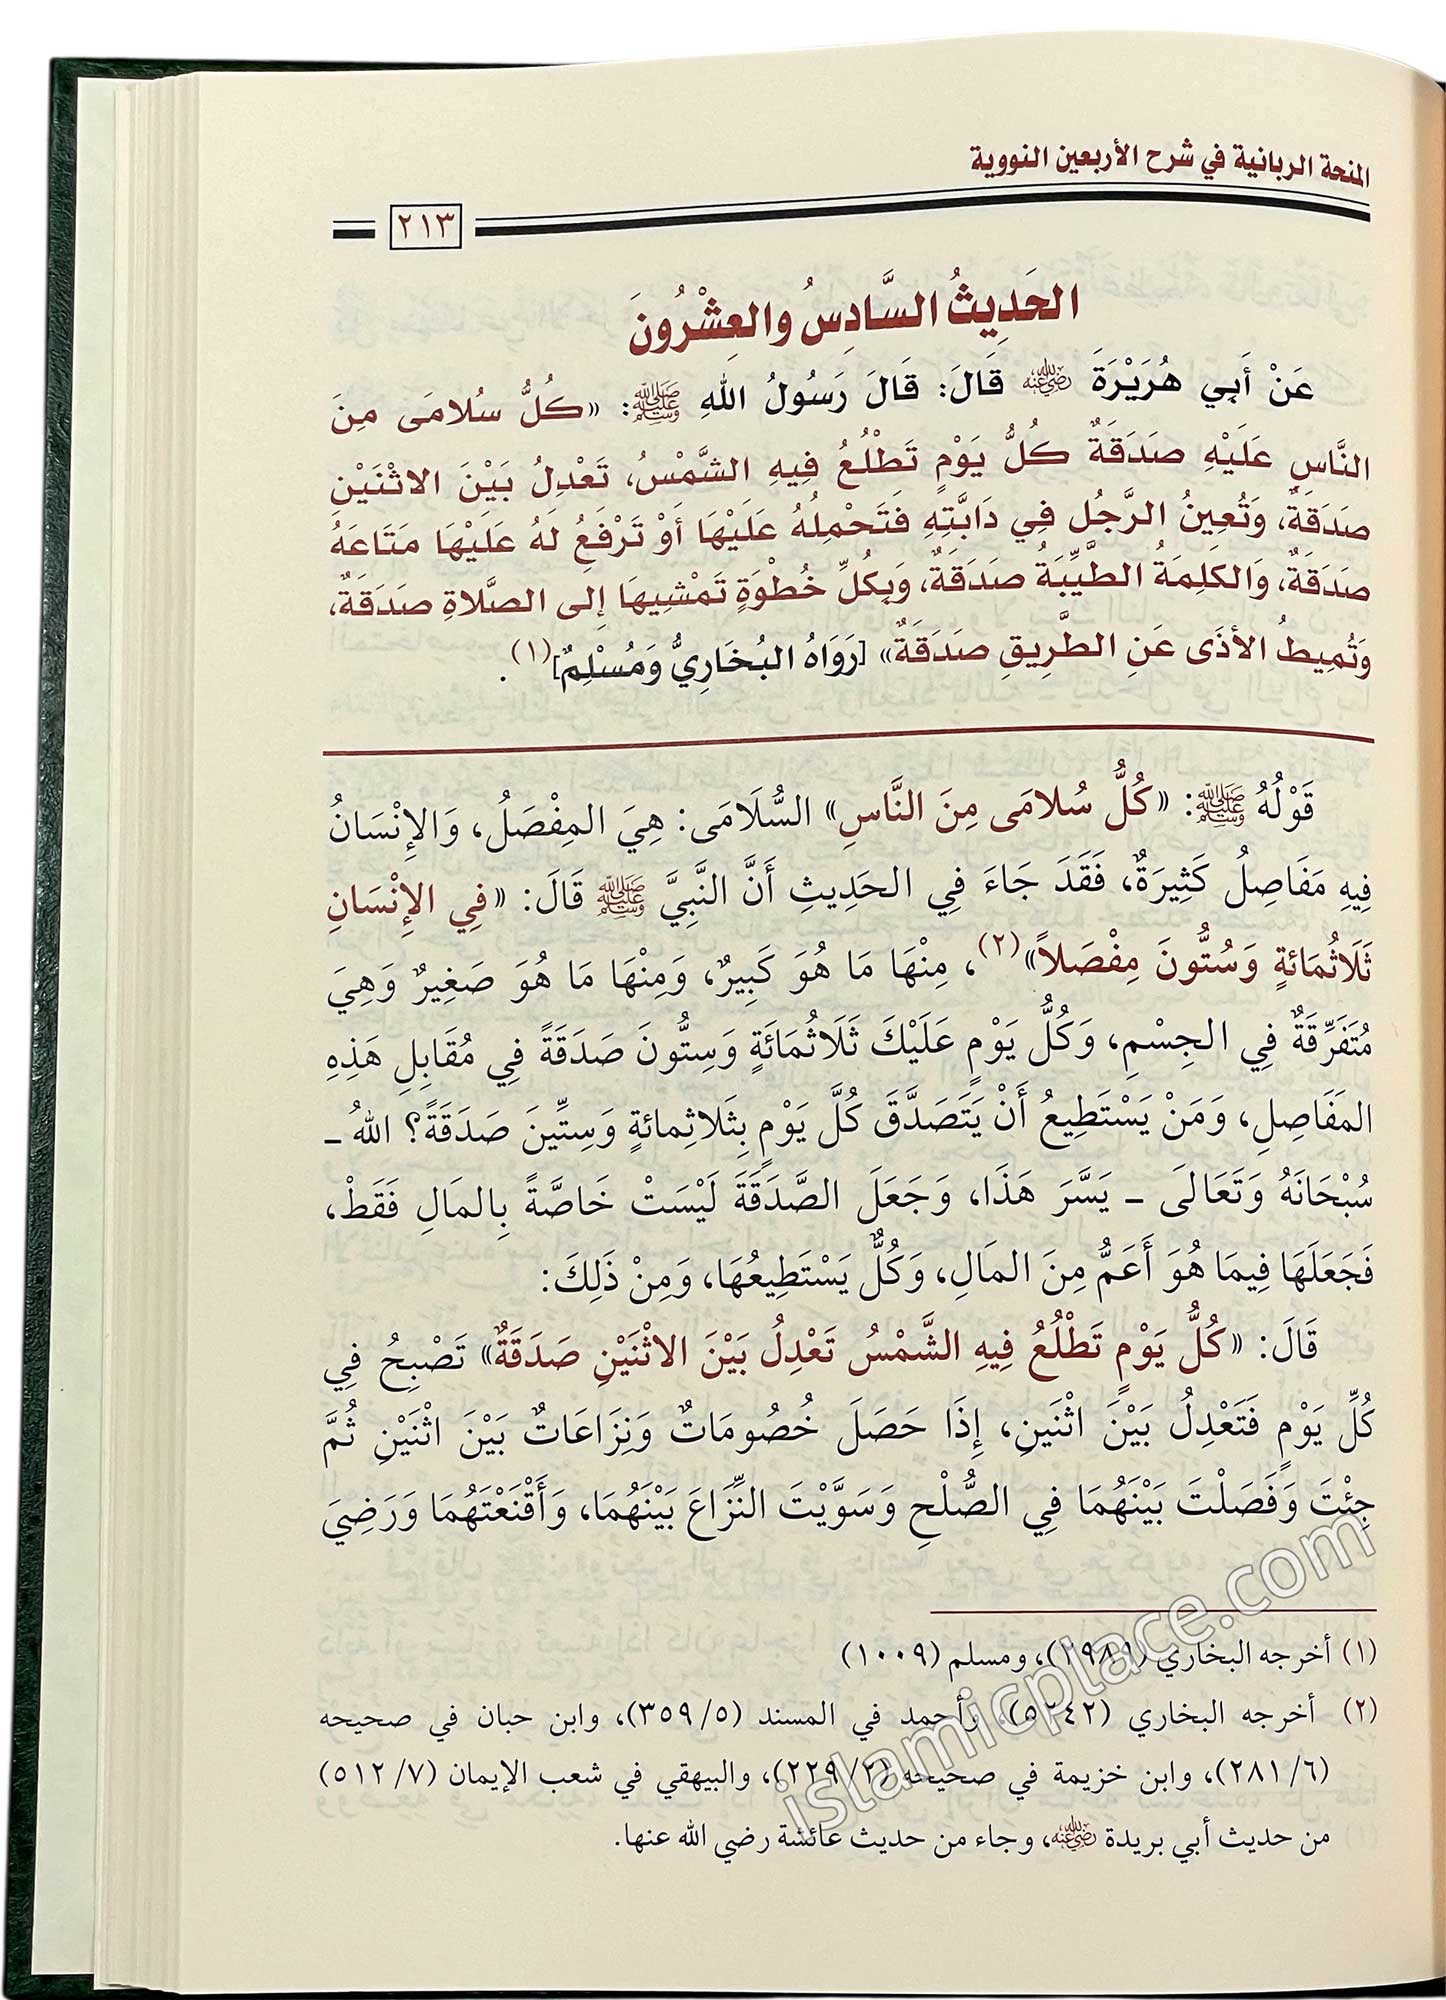 المنحة الربانية في شرح الأربعين النووية
٢١٣
الحَدِيثُ السَّادِسُ والعِشْرُونَ
عَنْ أَبِي هُرَيْرَةَ رضي الله عنه قَالَ: قَالَ رَسُولُ اللهِ ﷺ: «كُلُّ سُلامَى مِنَ
النَّاسِ عَلَيْهِ صَدَقَةٌ كُلُّ يَوْمٍ تَطْلُعُ فِيهِ الشَّمْسُ، تَعْدِلُ بَيْنَ الاثْنَيْنِ
صَدَقَةٌ، وَتُعِينُ الرَّجُلِ فِي دَابَّتِهِ فَتَحْمِلُهُ عَلَيْهَا أَوْ تَرْفَعُ لَهُ عَلَيْهَا مَتَاعَهُ
صَدَقَةٌ، وَالكَلِمَةُ الطَّيِّبَةُ صَدَقَةٌ، وَبِكُلِّ خُطْوَةٍ تَمْشِيهَا إِلى الصَّلاةِ صَدَقَةٌ،
وَتُمِيطُ الأذَى عَنِ الطَّرِيقِ صَدَقَةٌ» [رَوَاهُ البُخَارِيُّ وَمُسْلِمٌ](١).
قَوْلُهُ ﷺ: «كُلُّ سُلامَى مِنَ النَّاسِ» السُّلَامَى: هِيَ المِفْصَلُ، وَالإِنْسَانُ
فِيهِ مَفَاصِلُ كَثِيرَةٌ، فَقَدَ جَاءَ فِي الحَدِيثِ أَنَّ النَّبِيَّ ﷺ قَالَ: «فِي الإِنْسَانِ
ثَلَاثُمَائةٍ وَسُتُّونَ مِفْصَلاً»(٢)، مِنْهَا مَا هُوَ كَبِيرٌ، وَمِنْهَا مَا هُوَ صَغِيرٌ وَهِيَ
مُتَفَرِّقَةٌ فِي الجِسْمِ، وَكُلُّ يَوْمٍ عَلَيْكَ ثَلَاثُمَائَةٍ وَسِتُّونَ صَدَقَةً فِي مُقَابِلِ هَذِهِ
المَفَاصِلِ، وَمَنْ يَسْتَطِيعُ أَنْ يَتَصَدَّقَ كُلَّ يَوْمٍ بِثَلاثِمائةٍ وَسِتِّينَ صَدَقَةً؟ اللهُ ـ
سُبْحَانَهُ وَتَعَالَى ـ يَسَّرَ هَذَا، وَجَعَلَ الصَّدَقَةَ لَيْسَتْ خَاصَّةً بِالمَالِ فَقَطْ،
فَجَعَلَهَا فِيمَا هُوَ أَعَمُّ مِنَ المَالِ، وَكُلٌّ يَسْتَطِيعُهَا، وَمِنْ ذَلِكَ:
قَالَ: «كُلُّ يَوْمٍ تَطْلُعُ فِيهِ الشَّمْسُ تَعْدِلُ بَيْنَ الاثْنَيْنِ صَدَقَةٌ» تَصْبِحُ فِي
كُلِّ يَوْمٍ فَتَعْدِلُ بَيْنَ اثْنَينِ، إِذَا حَصَلَ خُصُومَاتٌ وَنِزَاعَاتٌ بَيْنَ اثْنَيْنِ ثُمَّ
جِئْتَ وَفَصَلْتَ بَيْنَهُمَا فِي الصُّلْحِ وَسَوَّيْتَ النِّزَاعَ بَيْنَهُمَا، وَأَقْنَعْتَهُمَا وَرَضِيَ
(١) أخرجه البخاري (٢٩٨٩)، ومسلم (١٠٠٩)
(٢) أخرجه البخاري (٥٢٤٢)، وأحمد في المسند (٣٥٩/٥)، وابن حبان في صحيحه
(٢٨١/٦)، وابن خزيمة في صحيحه (٢٢٩/٢)، والبيهقي في شعب الإيمان (٥١٢/٧)
من حديث أبي بريدة رضي الله عنه، وجاء من حديث عائشة رضي الله عنها.
islamicplace.com